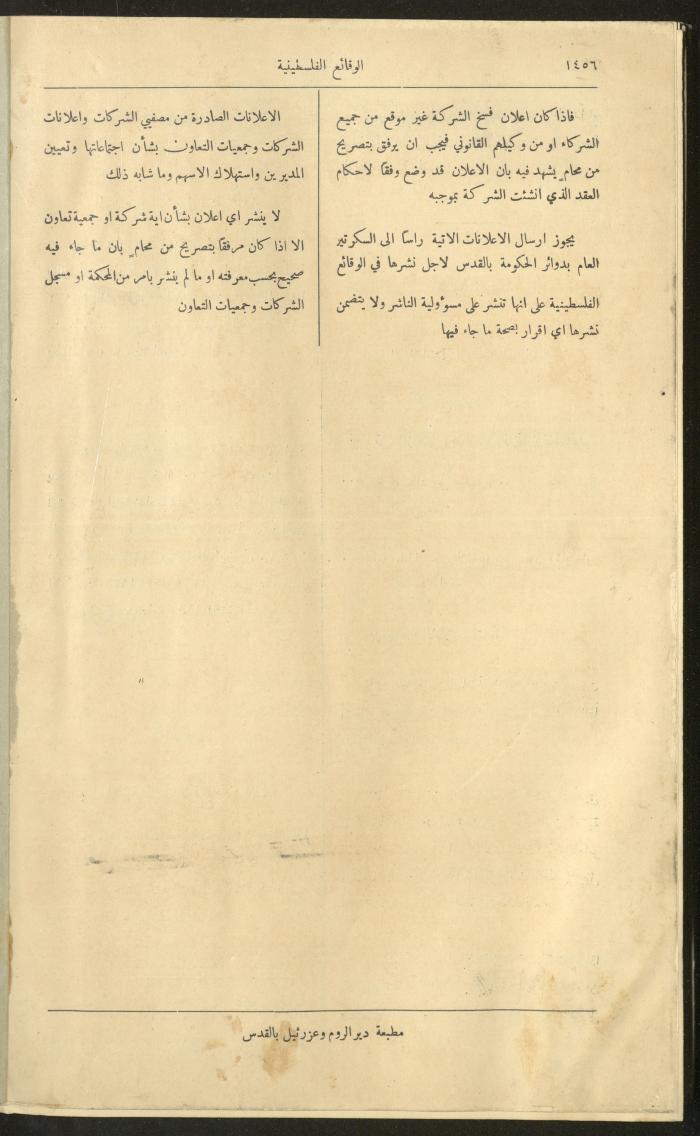 ١٤٥٦
الوقائع الفلسطينية
فاذا كان اعلان فسخ الشركة غير موقع من جميع
الشركاء او من وكيلهم القانوني فيجب ان يرفق بتصريح
من محامٍ يشهد فيه بان الاعلان قد وضع وفقا لاحكام
العقد الذي انشئت الشركة بموجبه
يجوز ارسال الاعلانات الاتية راسًا الى السكرتير
العام بدوائر الحكومة بالقدس لاجل نشرها في الوقائع
الفلسطينية على انها تنشر على مسؤولية الناشر ولا يتضمن
نشرها اي اقرار بصحة ما جاء فيها
الاعلانات الصادرة من مصفيي الشركات واعلانات
الشركات وجمعيات التعاون بشأن اجتماعاتها وتعيين
المديرين واستهلاك الاسهم وما شابه ذلك
لا ينشر اي اعلان بشأن اية شركة او جمعية تعاون
الا اذا كان مرفقا بتصريح من محامٍ بان ما جاء فيه
صحيح بحسب معرفته او ما لم ينشر بامر من المحكمة او مسجل
الشركات وجمعيات التعاون
مطبعة دير الروم وعزرئيل بالقدس